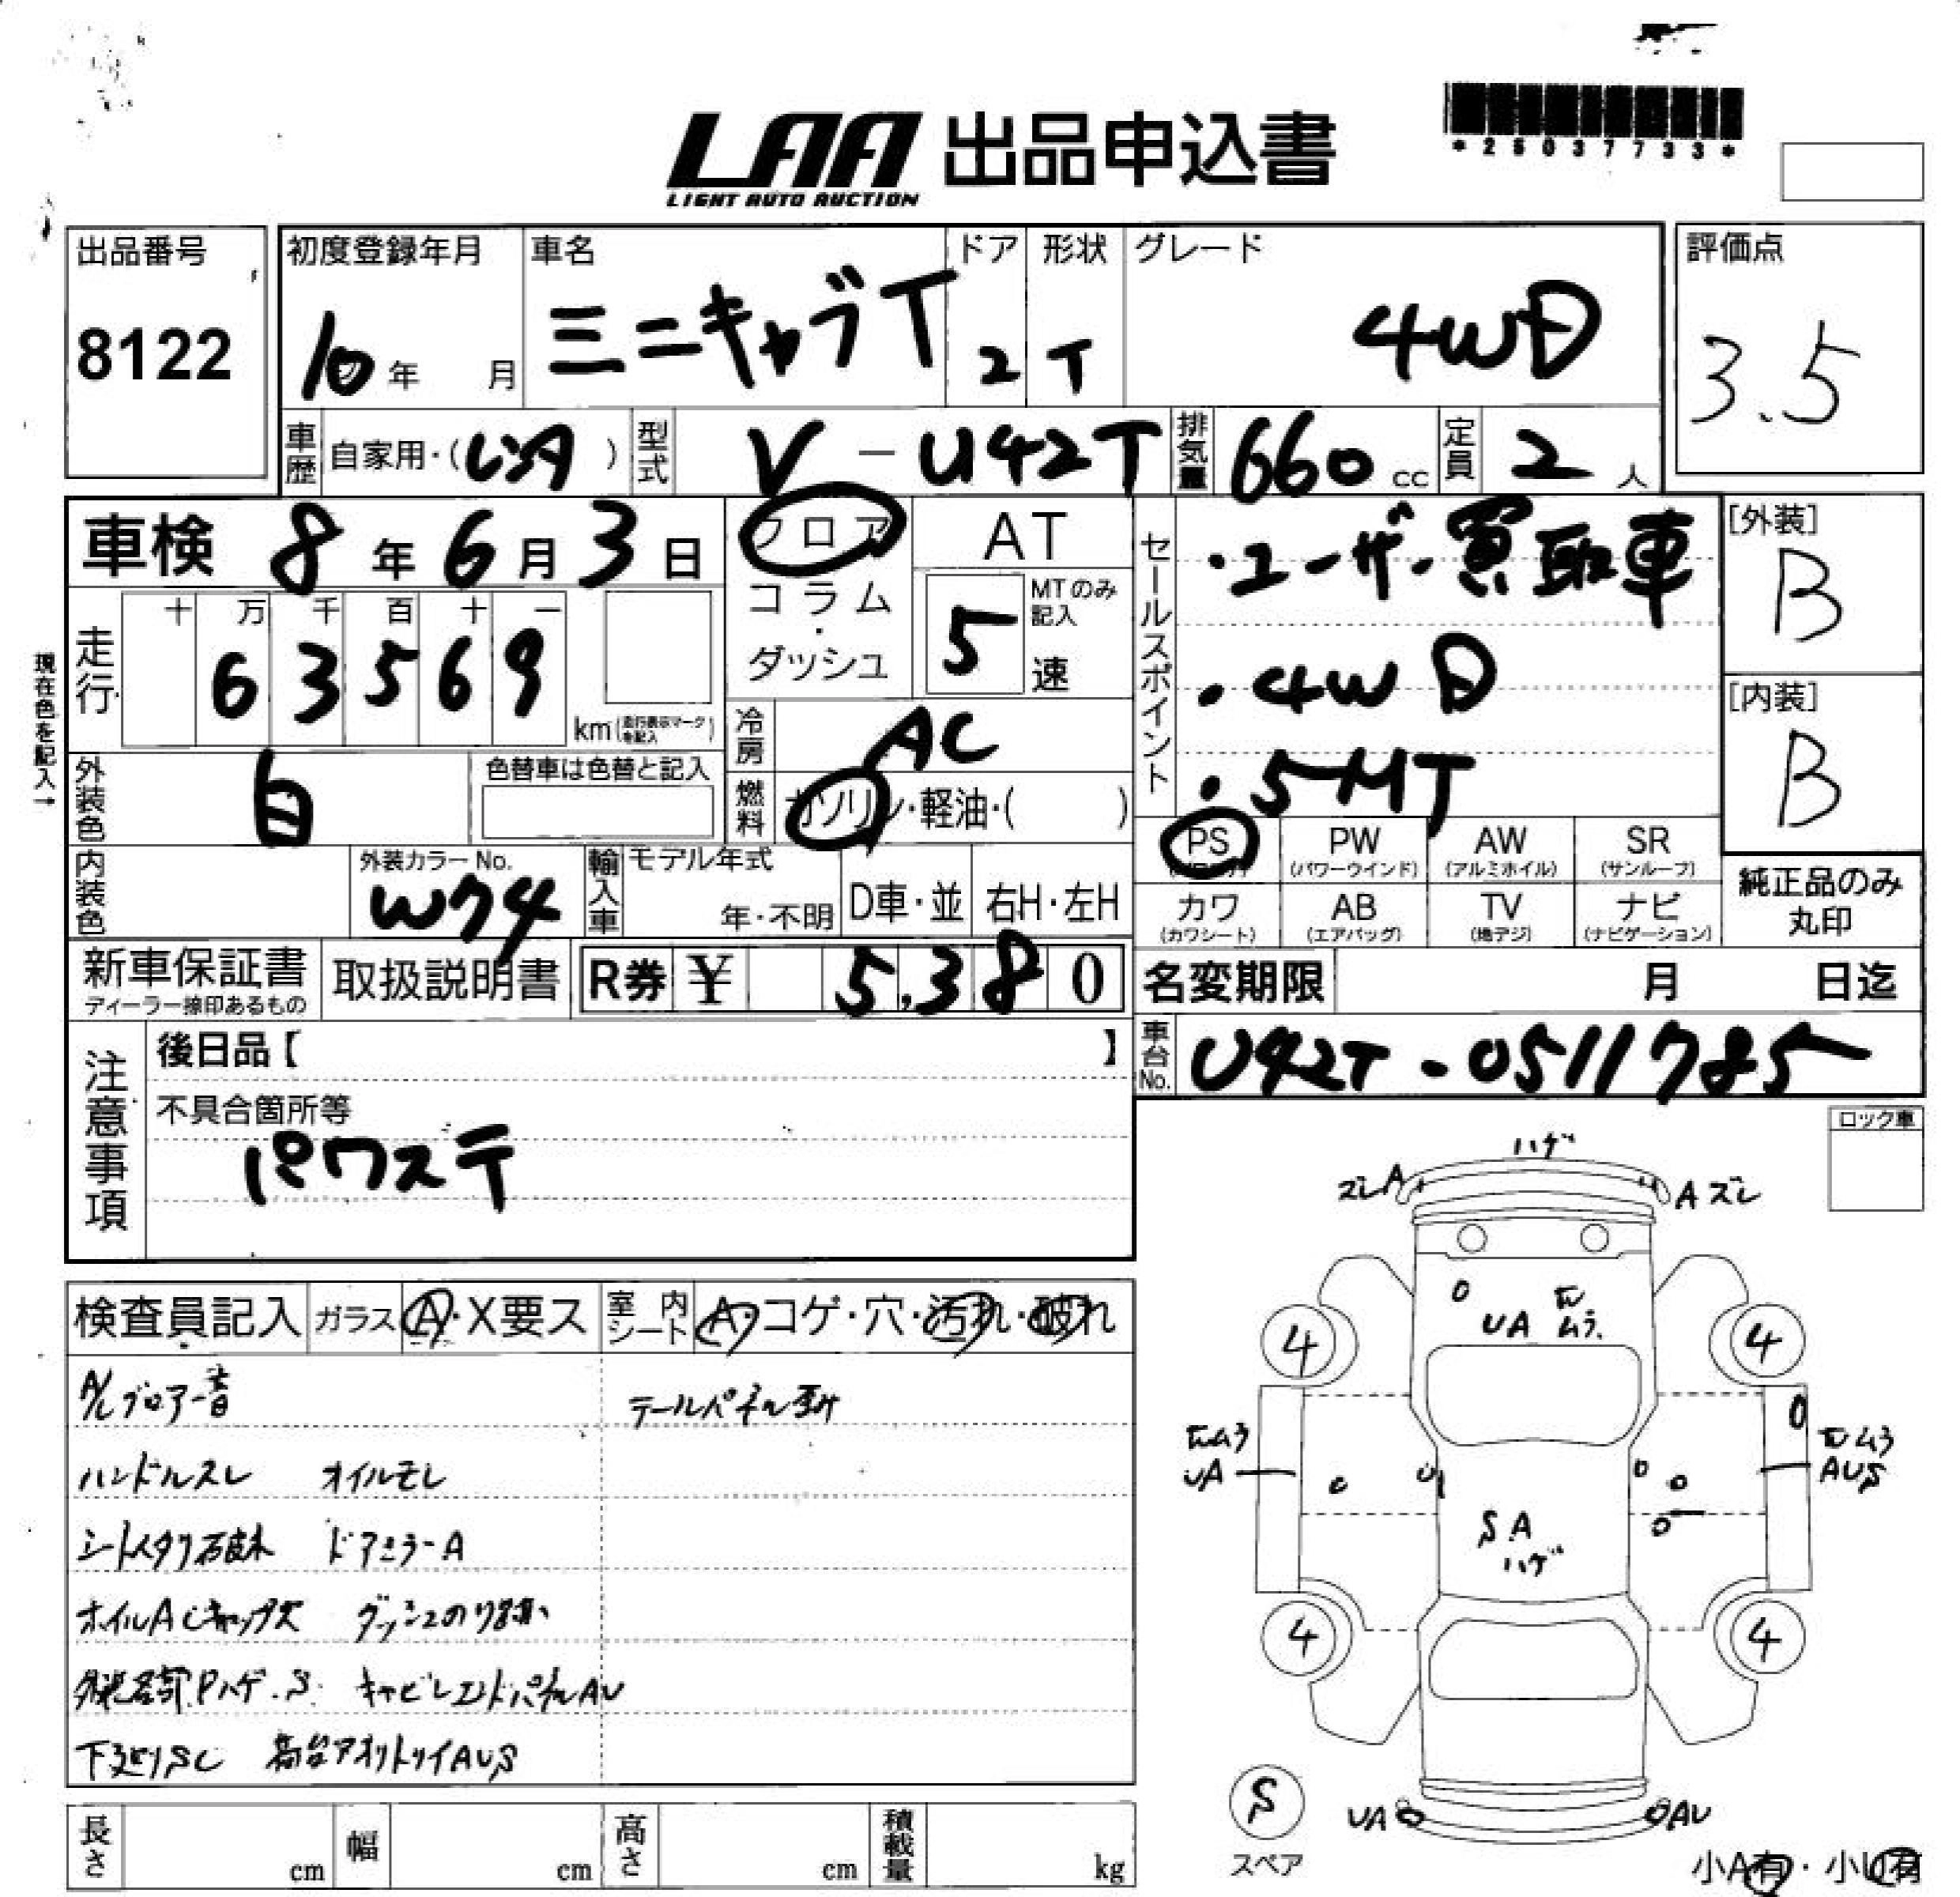 LAA 出品申込書
LIGHT AUTO AUCTION
*25037733*
出品番号
8122
初度登録年月
10年 月
車名
ミニキャブT
ドア
2
形状
T
グレード
4WD
評価点
3.5
車歴 自家用・(レンタ)
型式 V-U42T
排気量 660cc
定員 2人
車検 8年6月3日
走行
十 万 千 百 十 一
6 3 5 6 9
km(走行表示マークを記入)
現在色を記入→
フロア
コラム・ダッシュ
AT
5 MTのみ記入
速
冷房 AC
燃料 ガソリン・軽油・( )
セールスポイント
・ユーザー買取車
・4WD
・5MT
[外装]
B
[内装]
B
外装色 白
色替車は色替と記入
内装色
外装カラーNo.
W74
輸入車 モデル年式
年・不明
D車・並 右H・左H
PS PW (パワーウインド) AW (アルミホイル) SR (サンルーフ)
カワ (カワシート) AB (エアバッグ) TV (地デジ) ナビ (ナビゲーション)
純正品のみ
丸印
新車保証書
ディーラー捺印あるもの
取扱説明書
R券 ¥ 5,380
名変期限 月 日迄
車台No. U42T-0511785
注意事項
後日品【 】
不具合箇所等
パワステ
ロック車
検査員記入 ガラス A・X要ス 室内シート A・コゲ・穴・汚れ・破れ
A/Cブロアー音 テールパネル歪み
ハンドルスレ オイルモレ
シートスタリ破れ ドアミラーA
ホイルAC キャップ欠 ダッシュのり跡
外装各部Pハゲ.S キャビンエンドパネルAU
下廻りSC 荷台アオリトリイAUS
ハゲ
ズレA
Aズレ
UA
ムラ
4
4
ムラ
UA
ムラ
AUS
SA
ハゲ
4
4
S
スペア
UA
AU
長さ cm 幅 cm 高さ cm 積載量 kg
小A有・小U有